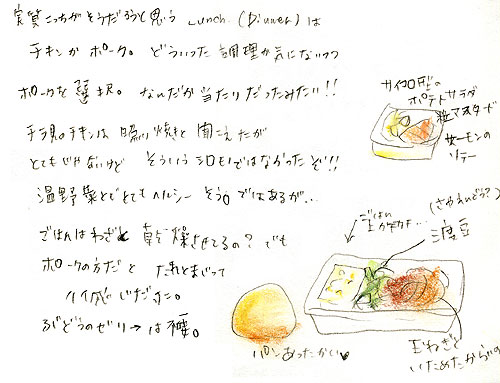 実質こっちがそうだろうと思う Lunch (Dinner) は
チキンか ポーク。 どういった 調理か気になりつつ
ポークを 選択。 なんだか当たりだったみたい!!
チラ見のチキンは 照り焼きと 聞こえたが
とてもじゃないけど そういうシロモノではなかったぞ!!
温野菜とでとてもヘルシー そう。ではあるが…
ごはんはわざと 乾燥させてるの? でも
ポークの方だと たれとまじって
いい感じだった。
ぶどうのゼリーは 種。
サイコロ型の
ポテトサラダ
粒マスタード
サーモンの
ソテー
(さやえんどう?)
三度豆
ごはん
カサカサ…
パンあったかい
玉ねぎと
いためたからいの